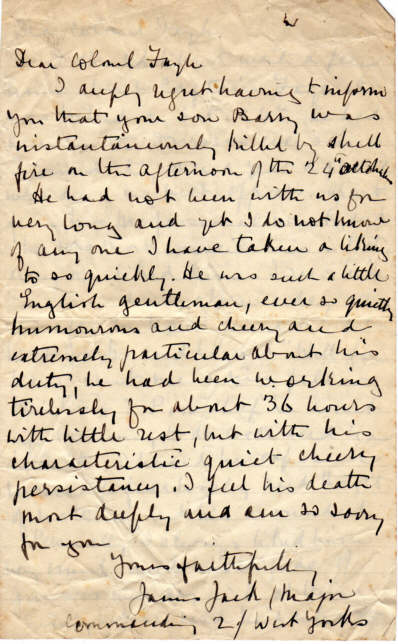 Dear Colonel Fayle
I deeply regret having to inform
you that your son Barry was
instantaneously killed by shell
fire on the afternoon of the 24th October
He had not been with us for
very long and yet I do not know
of any one I have taken a liking
to so quickly. He was such a little
English gentleman, ever so quietly
humourous and cheery and
extremely particular about his
duty, he had been working
tirelessly for about 36 hours
with little rest, but with his
characteristic quiet cheery
persistancy. I feel his death
most deeply and am so sorry
for you
Yours faithfully,
James Jack / Major
Commanding 2/ West Yorks